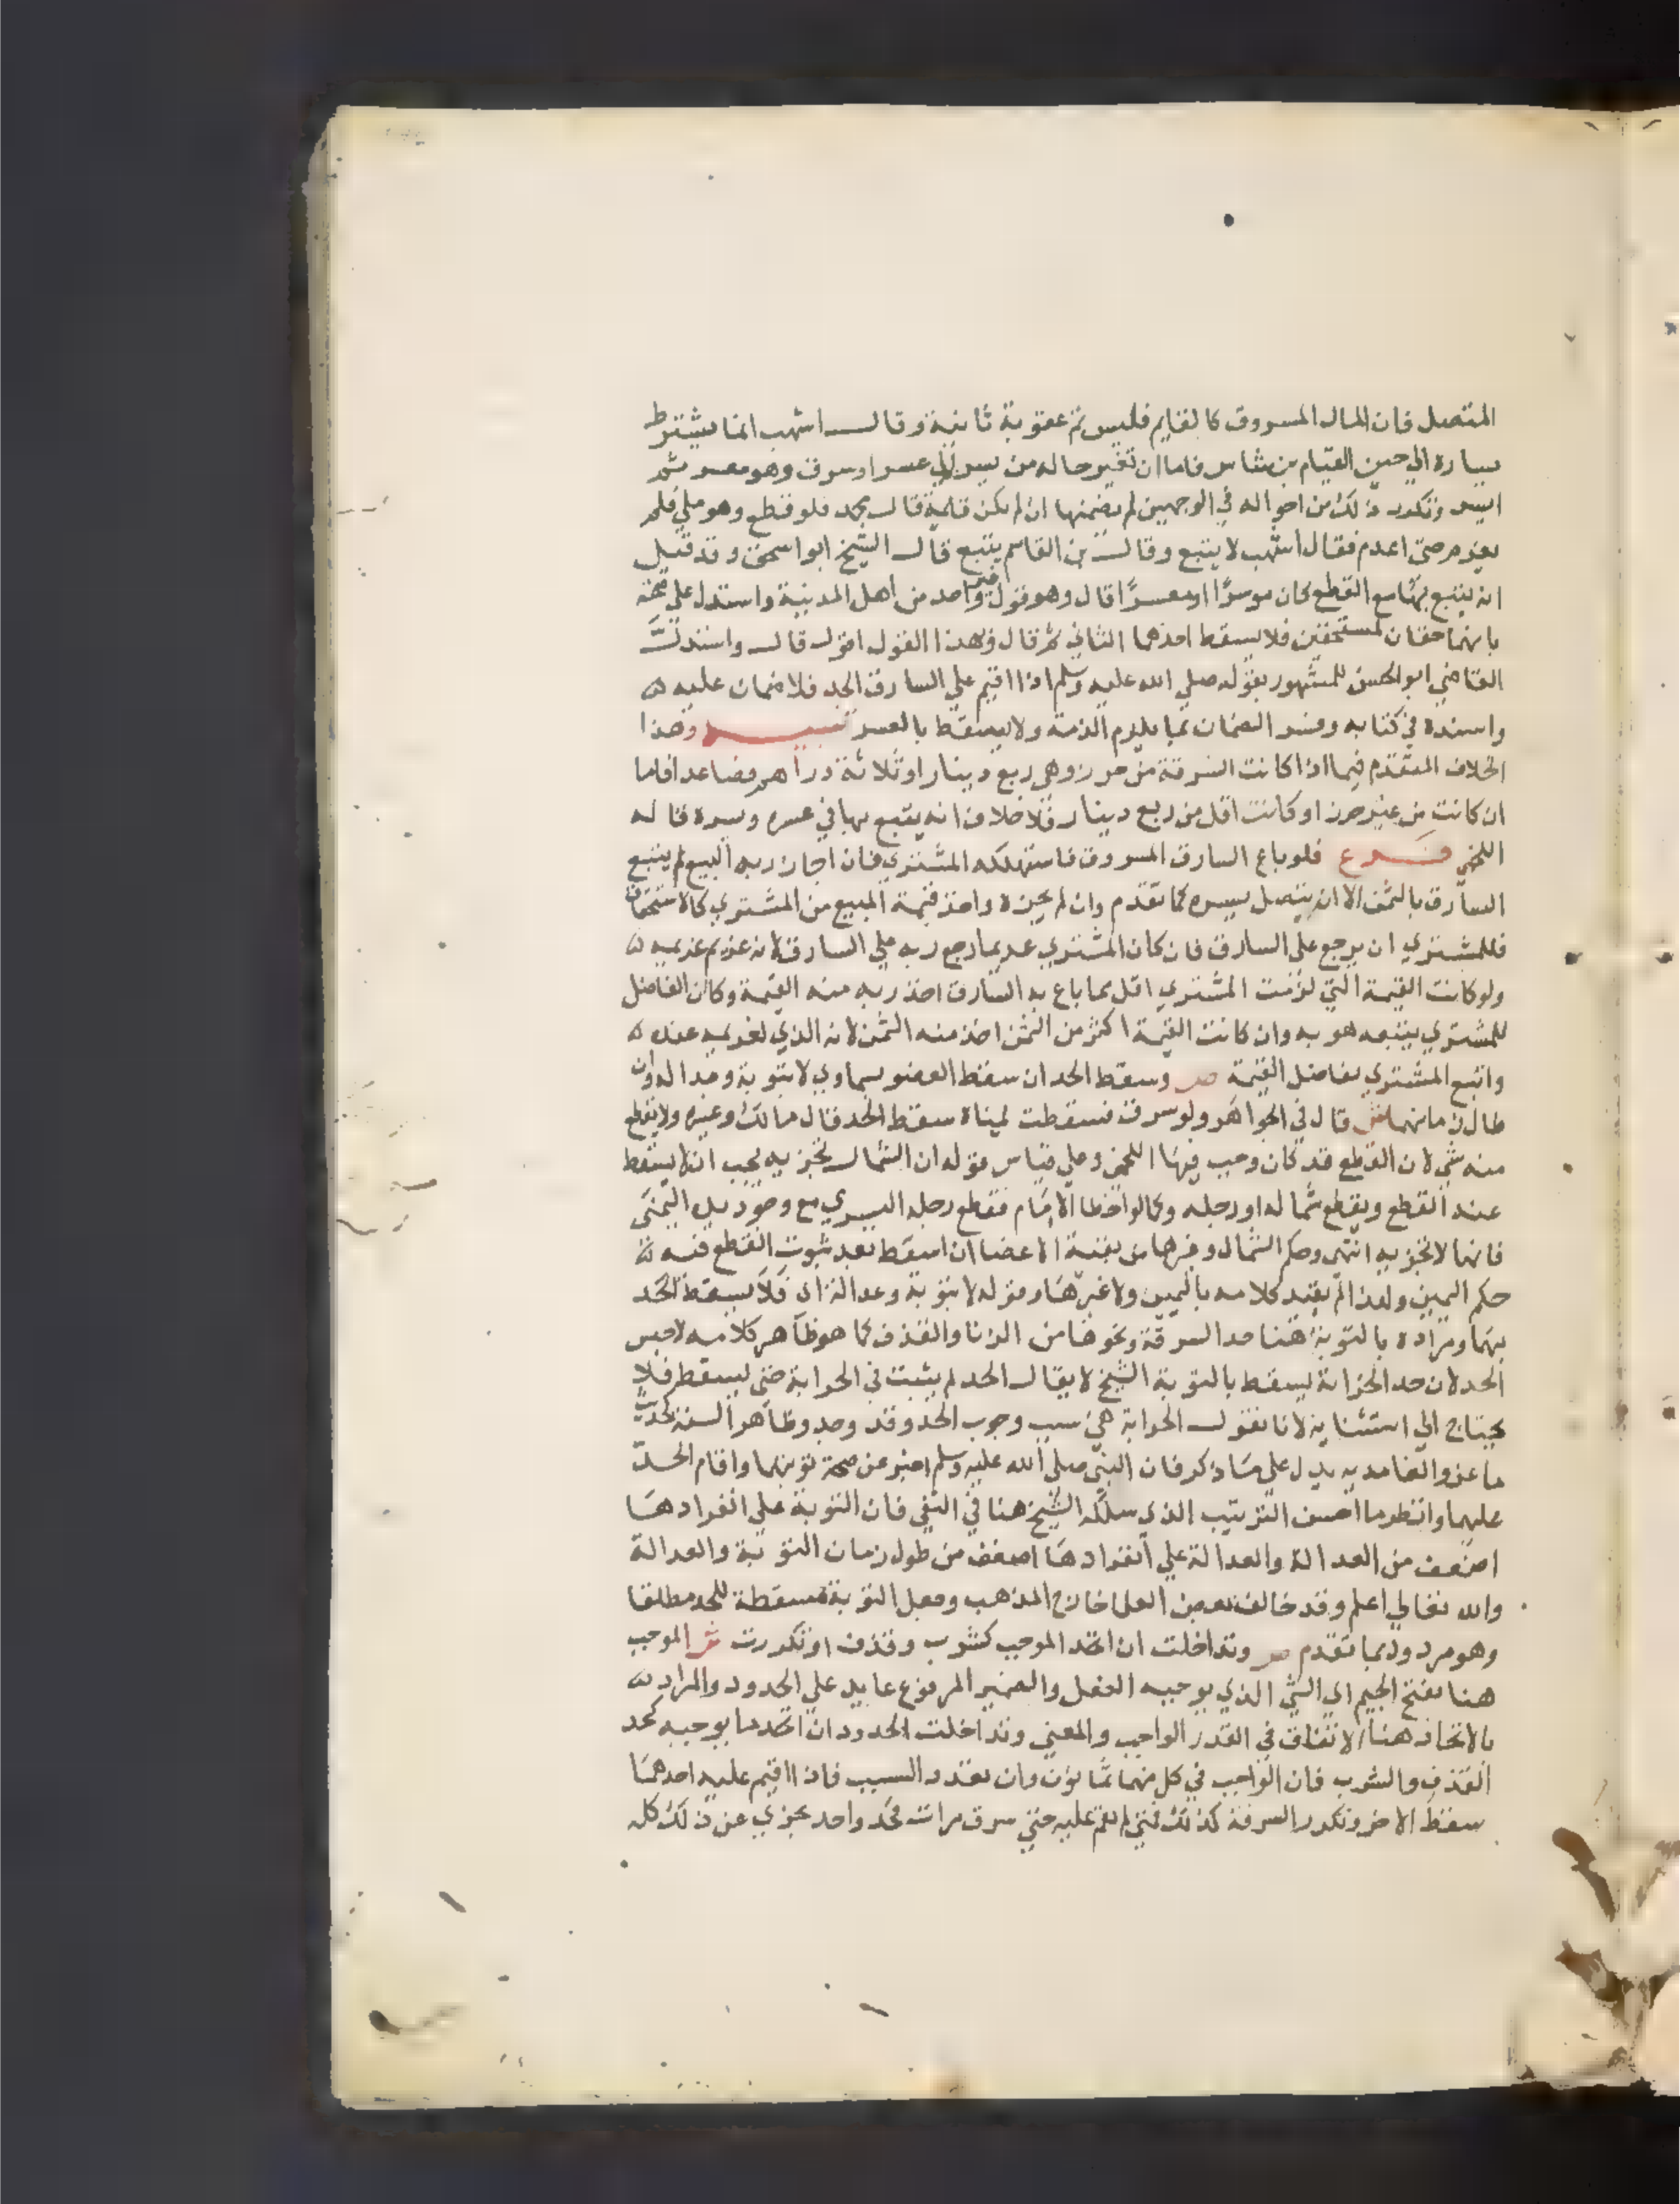 المتصل فان المال المسروق كالقايم فليس ثم عقوبة ثانية وقال اشهب انما يشترط
يساره الي حين القيام بن شاس فاما ان تغير حاله من يسر الي عسر او سرق وهو معسر ثم
ايسر وتكرر ذلك من احواله في الوجهين لم يضمنها ان لم يكن قايمة قال محمد فلو قطع وهو ملي فلم
يغرم حتي اعدم فقال اشهب لا يتبع وقال بن القاسم يتبع قال الشيخ ابو اسحق وقد قيل
انه يتبع بها مع القطع كان موسرا او معسرا قال وهو قول غير واحد من اهل المدينة واستدل علي صحته
بانهما حقان لمستحقين فلا يسقط احدهما الثاني ثم قال وبهذا القول اقول قال واستدل
القاضي ابو الحسن للمشهور بقوله صلي الله عليه وسلم اذا اقيم علي السارق الحد فلا ضمان عليه
واسنده في كتابه وفسر الضمان بما يلزم الذمة ولا يسقط بالعسر تنبيه وهذا
الخلاف المتقدم فيما اذا كانت السرقة من حرز وهي ربع دينار او ثلاثة دراهم فصاعدا فاما
ان كانت من غير حرز او كانت اقل من ربع دينار فلا خلاف انه يتبع بها في عسره ويسره قاله
اللخمي فرع فلو باع السارق المسروق فاستهلكه المشتري فان اجاز ربه البيع لم يتبع
السارق بالثمن الا ان يتصل يسره كما تقدم وان لم يجزه واخذ قيمة المبيع من المشتري كالاستحقاق
فللمشتري ان يرجع علي السارق فان كان المشتري عديما رجع ربه علي السارق لانه غريم غريمه
ولو كانت القيمة التي لزمت المشتري اقل مما باع به السارق اخذ ربه منه القيمة وكان الفاضل
للمشتري يتبعه هو به وان كانت القيمة اكثر من الثمن اخذ منه الثمن لانه الذي لغريمه عنده
واتبع المشتري بفاضل القيمة ص وسقط الحد ان سقط العضو بسماوي لا بتوبة وعدالة وان
طال زمانهما ش قال في الجواهر ولو سرق فسقطت يمناه سقط الحد قال مالك وغيره ولا يقطع
منه شي لان القطع قد كان وجب فيها اللخمي وعلي قياس قوله ان الشمال تجزيه يجب ان لا يسقط
عنه القطع ويقطع شماله او رجله وكما لو اخطا الامام فقطع رجله اليسري مع وجود يده اليمني
فانها لا تجزيه انتهي وحكم الشمال وغيرها من بقية الاعضا ان اسقط بعد ثبوت القطع فيه
حكم اليمين ولهذا لم يقيد كلامه باليمين ولا غيرها وقوله لا بتوبة وعدالة اي فلا يسقط الحد
بهما ومراده بالتوبة هنا حد السرقة ونحوها من الزنا والقذف كما هو ظاهر كلامه لا جنس
الحد لان حد الحرابة يسقط بالتوبة الشيخ لا يقال الحد لم يثبت في الحرابة حتي يسقط فلا
يحتاج الي استثنايه لانا نقول الحرابة هي سبب وجوب الحد وقد وجد وظاهر السنة كحديث
ماعز والغامدية يدل علي ما ذكر فان النبي صلي الله عليه وسلم اخبر عن صحة توبتهما واقام الحد
عليهما وانظر ما احسن الترتيب الذي سلكه الشيخ هنا في النفي فان التوبة علي انفرادها
اضعف من العدالة والعدالة علي انفرادها اضعف من طول زمان التوبة والعدالة
والله تعالي اعلم وقد خالف بعض العلما خارج المذهب وجعل التوبة مسقطة للحد مطلقا
وهو مردود بما تقدم ص وتداخلت ان اتحد الموجب كشرب وقذف او تكررت ش الموجب
هنا بفتح الجيم اي الشي الذي يوجبه الفعل والضمير المرفوع عايد علي الحدود والمراد
بالاتحاد هنا الاتفاق في القدر الواجب والمعني وتداخلت الحدود ان اتحد ما يوجبه كحد
القذف والشرب فان الواجب في كل منهما ثمانون وان تعدد السبب فاذا اقيم عليه احدهما
سقط الاخر وتكرر السرقة كذلك فمتي لم يقم عليه حتي سرق مرات فحد واحد يجزي عن ذلك كله